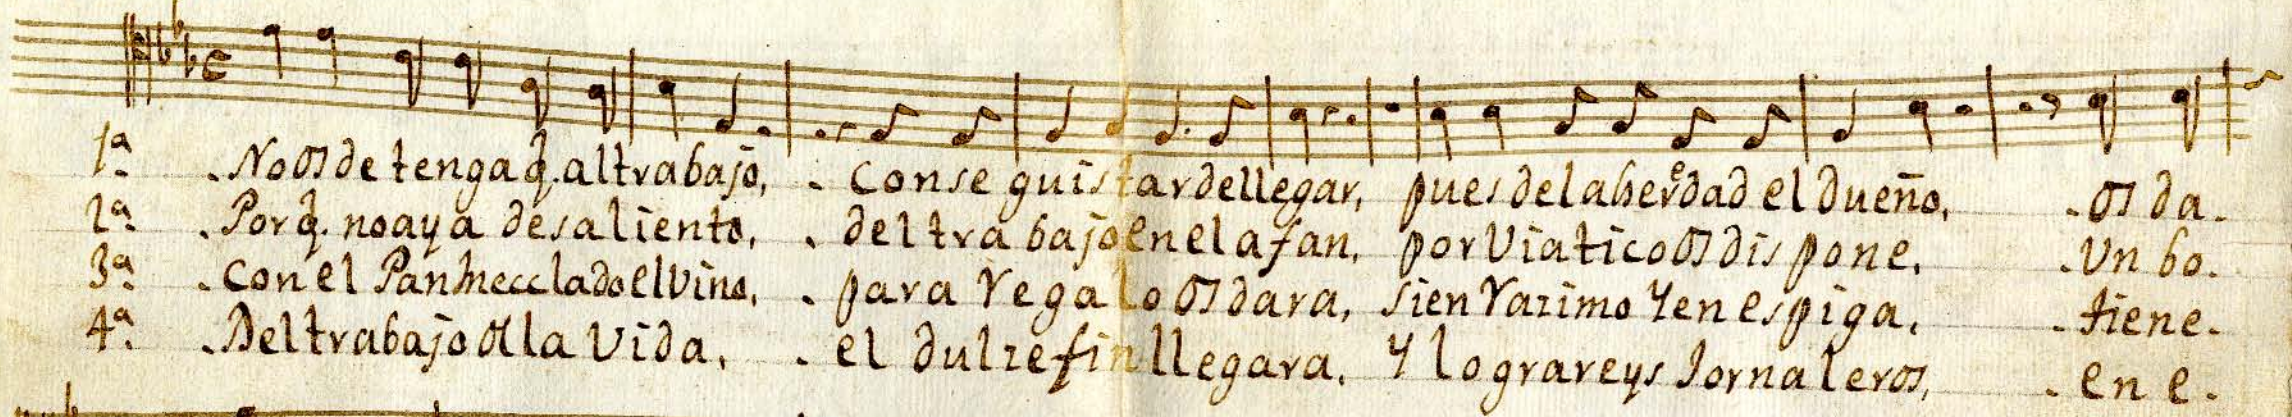 1ª. No os detenga q̃. al trabajo, conseguis tarde llegar, pues de la heredad el dueño, os da.
2ª. Porq̃. no aya desaliento, del trabajo en el afan, por Viatico os dispone, Un bo.
3ª. Con el Pan mecclado el vino, para regalo os dara, si en razimo Y en espiga, tiene.
4ª. Del trabajo de la Vida, el dulze fin llegara, Y lograreys Jornaleros, en e.